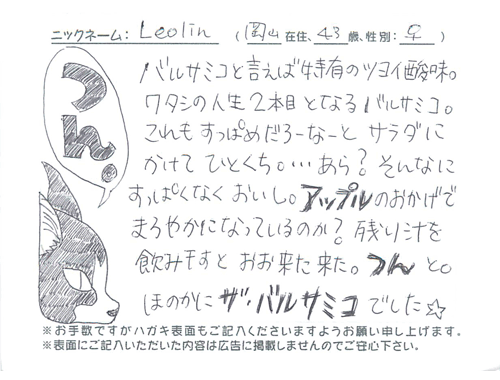 ニックネーム: Leolin (岡山 在住、43 歳、性別: 早)
つん。
バルサミコと言えば特有のツヨイ酸味。
ワタシの人生2本目となるバルサミコ。
これもすっぱめだろーなーと サラダに
かけて ひとくち。…あら? そんなに
すっぱくなく おいし。アップルのおかげで
まろやかになっているのか? 残り汁を
飲み干すと おお来た来た。つんと。
ほのかに ザ・バルサミコでした☆
※お手数ですがハガキ表面もご記入くださいますようお願い申し上げます。
※表面にご記入いただいた内容は広告に掲載しませんのでご安心下さい。